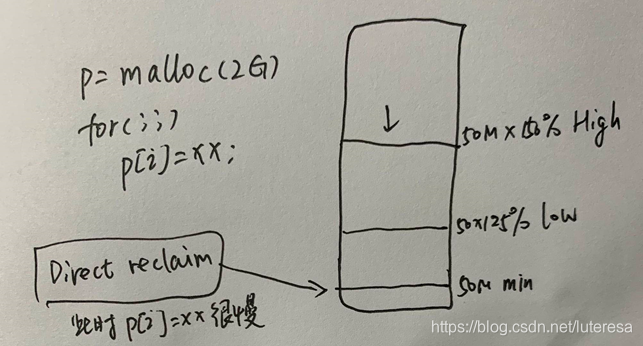 p= malloc(2G)
for(;;)
p[i]=xx;
50M x 150% High
50x125% low
50M min
Direct reclaim
此时 p[i]=xx 很慢
https://blog.csdn.net/luteresa